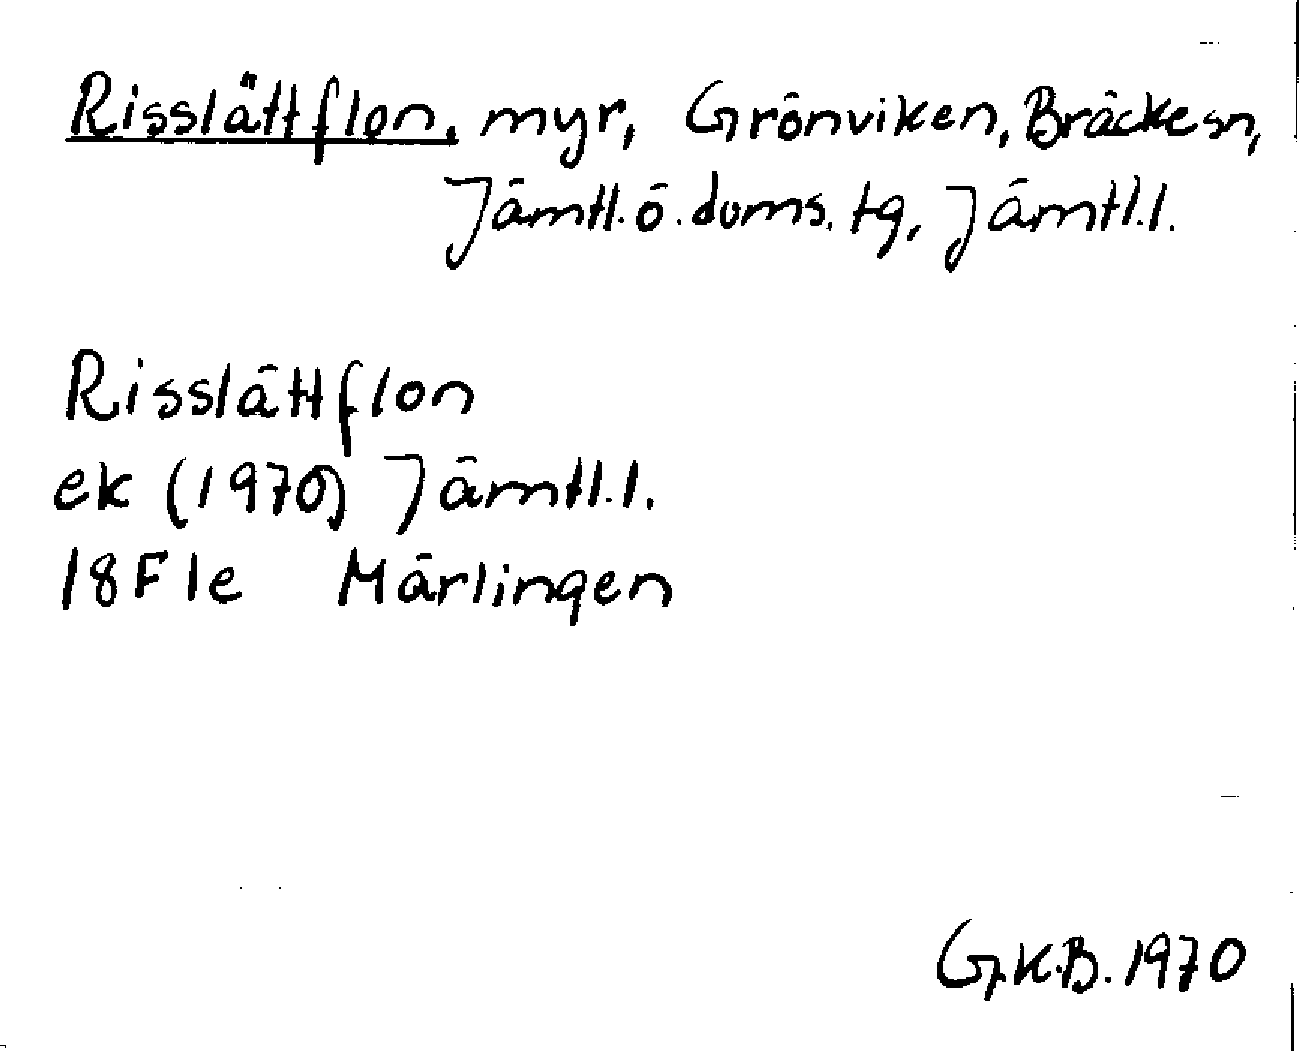 Risslättflon, myr, Grönviken, Bräckesn,
Jämtl.ö.doms.tg, Jämtl.l.
Risslättflon
ek (1970) Jämtl.l.
18F1e Märlingen
G.K.B. 1970